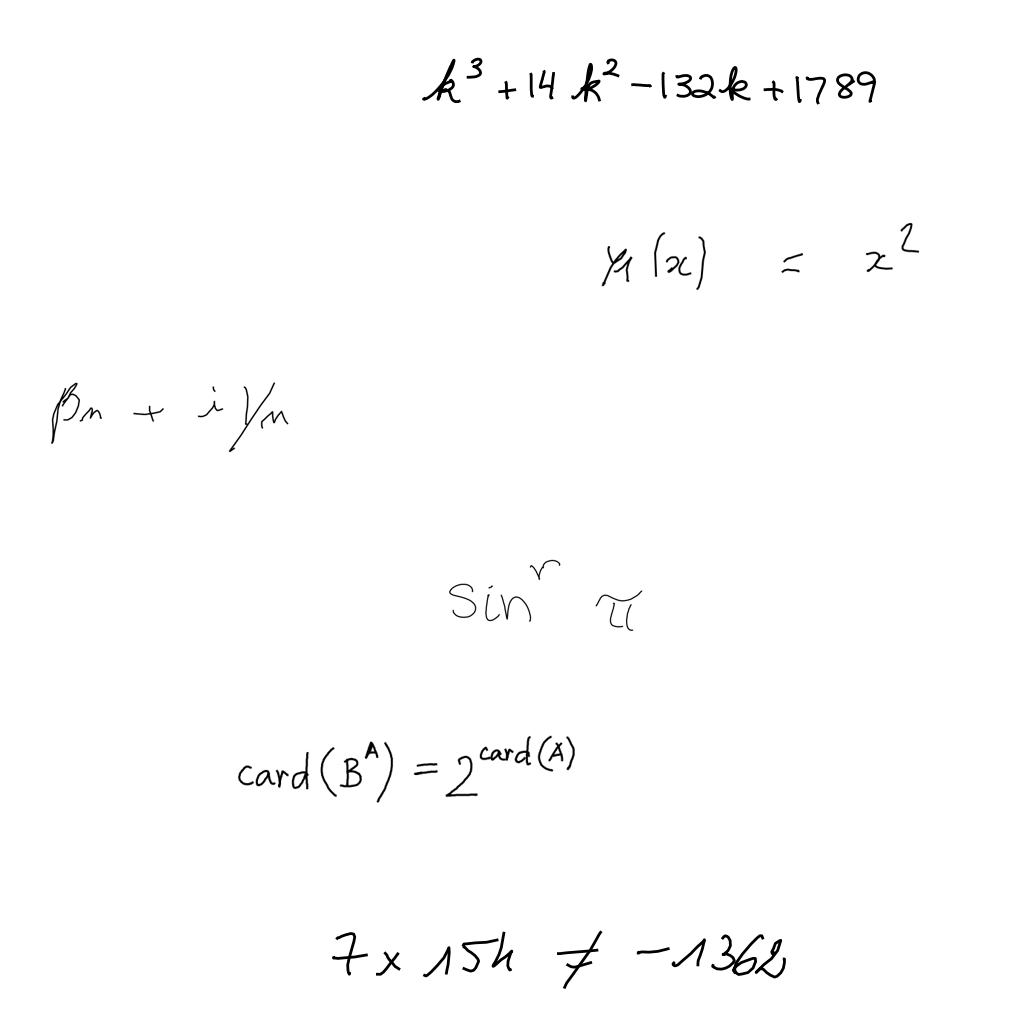 k³ + 14 k² - 132k + 1789
y₁(x) = x²
βₙ + i γₙ
sinʳ π
card(Bᴬ) = 2^card(A)
7 × 154 ≠ -1362